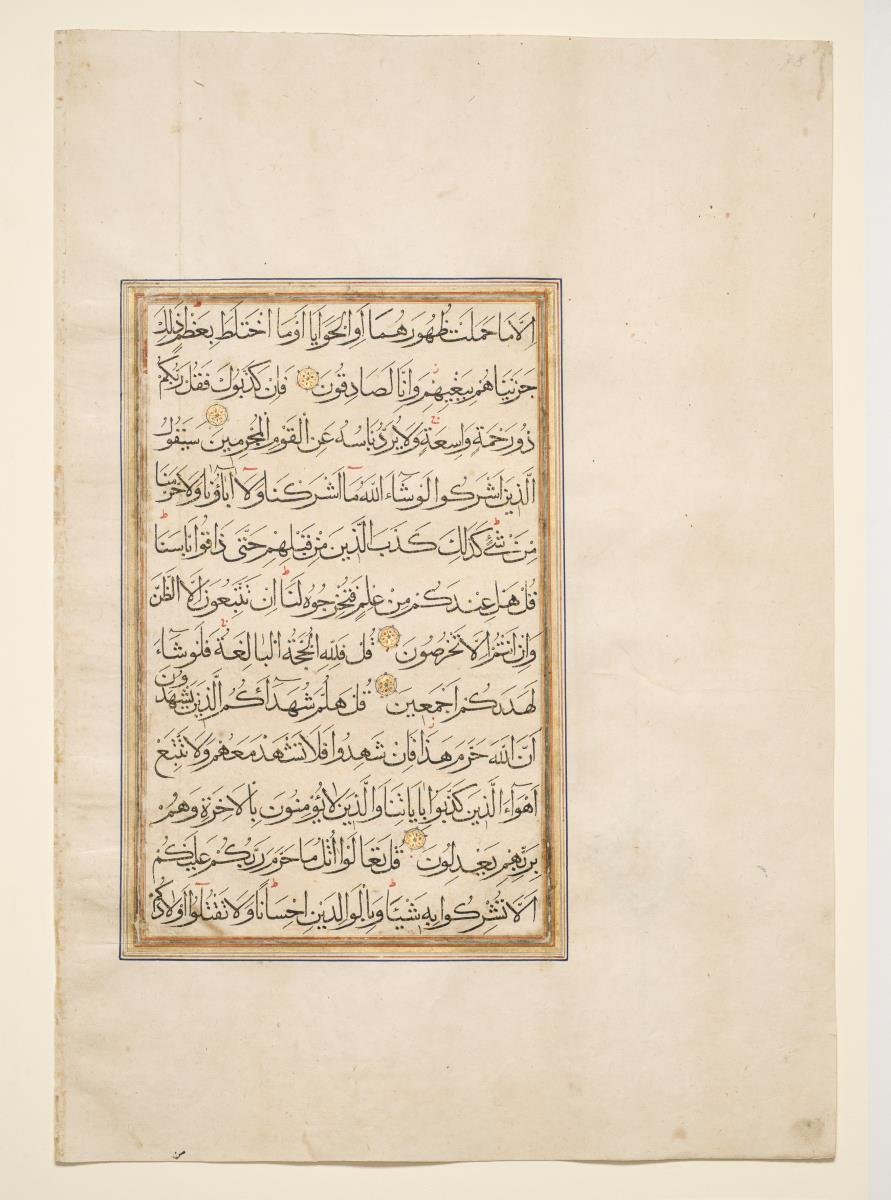 78
اِلَّا مَا حَمَلَتْ ظُهُورُهُمَا اَوِ الْحَوَايَا اَوْ مَا اخْتَلَطَ بِعَظْمٍ ذٰلِكَ
جَزَيْنَاهُمْ بِبَغْيِهِمْ وَاِنَّا لَصَادِقُونَ فَاِنْ كَذَّبُوكَ فَقُلْ رَبُّكُمْ
ذُو رَحْمَةٍ وَاسِعَةٍ وَلَا يُرَدُّ بَاْسُهُ عَنِ الْقَوْمِ الْمُجْرِمِينَ سَيَقُولُ
الَّذِينَ اَشْرَكُوا لَوْ شَاءَ اللّٰهُ مَا اَشْرَكْنَا وَلَا اٰبَاؤُنَا وَلَا حَرَّمْنَا
مِنْ شَيْءٍ كَذٰلِكَ كَذَّبَ الَّذِينَ مِنْ قَبْلِهِمْ حَتَّى ذَاقُوا بَاْسَنَا
قُلْ هَلْ عِنْدَكُمْ مِنْ عِلْمٍ فَتُخْرِجُوهُ لَنَا اِنْ تَتَّبِعُونَ اِلَّا الظَّنَّ
وَاِنْ اَنْتُمْ اِلَّا تَخْرُصُونَ قُلْ فَلِلّٰهِ الْحُجَّةُ الْبَالِغَةُ فَلَوْ شَاءَ
لَهَدٰىكُمْ اَجْمَعِينَ قُلْ هَلُمَّ شُهَدَاءَكُمُ الَّذِينَ يَشْهَدُونَ
اَنَّ اللّٰهَ حَرَّمَ هٰذَا فَاِنْ شَهِدُوا فَلَا تَشْهَدْ مَعَهُمْ وَلَا تَتَّبِعْ
اَهْوَاءَ الَّذِينَ كَذَّبُوا بِاٰيَاتِنَا وَالَّذِينَ لَا يُؤْمِنُونَ بِالْاٰخِرَةِ وَهُمْ
بِرَبِّهِمْ يَعْدِلُونَ قُلْ تَعَالَوْا اَتْلُ مَا حَرَّمَ رَبُّكُمْ عَلَيْكُمْ
اَلَّا تُشْرِكُوا بِهِ شَيْئًا وَبِالْوَالِدَيْنِ اِحْسَانًا وَلَا تَقْتُلُوا اَوْلَادَكُمْ
من